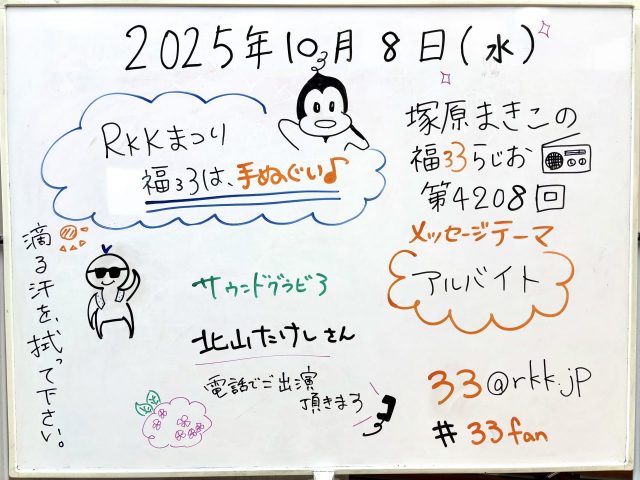 2025年10月8日(水)
RKKまつり
福33は、手ぬぐい♪
塚原まきこの
福33らじお
第4208回
メッセージテーマ
アルバイト
滴る汗を、拭って下さい。
サウンドグラビ3
北山たけしさん
電話でご出演
頂きま3
33@rkk.jp
#33fan